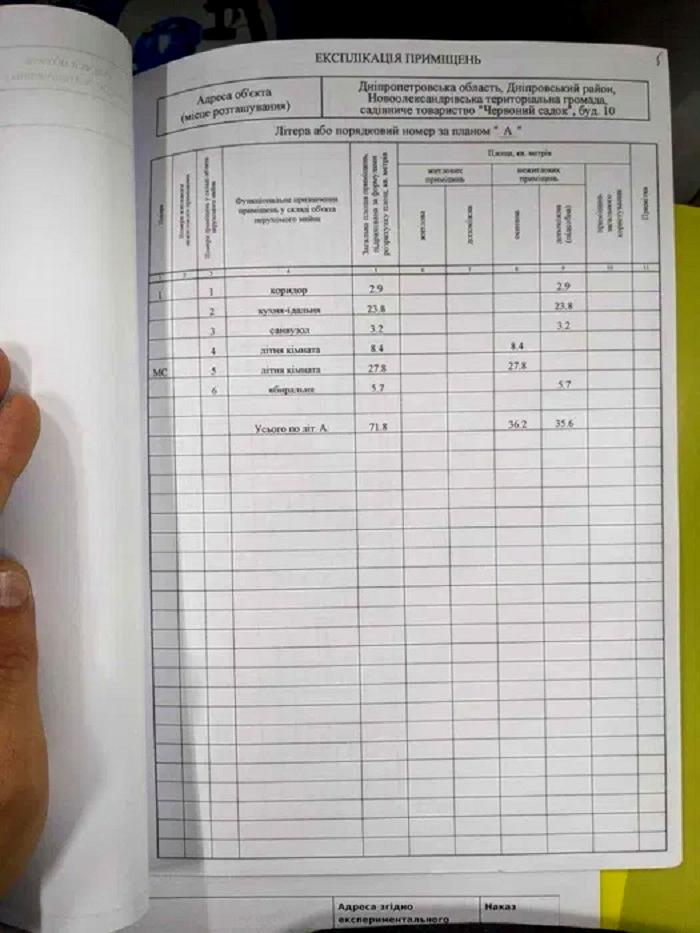 ЕКСПЛІКАЦІЯ ПРИМІЩЕНЬ
Адреса об'єкта
(місце розташування)
Дніпропетровська область, Дніпровський район,
Новоолександрівська територіальна громада,
садівниче товариство "Червоний садок", буд. 10
Літера або порядковий номер за планом " А "
Площа, кв. метрів
житлових
приміщень
нежитлових
приміщень
Поверх
Функціональне призначення
приміщень у складі об'єкта
нерухомого майна
Загальна площа приміщень,
підрахована за формулами
розрахунку площ, кв. метрів
житлова
допоміжна
основна
допоміжна
(підсобна)
приміщень
загального
користування
Примітка
1 2 3 4 5 6 7 8 9 10 11
1 1 коридор 2.9 2.9
2 кухня-їдальня 23.8 23.8
3 санвузол 3.2 3.2
4 літня кімната 8.4 8.4
МС 5 літня кімната 27.8 27.8
6 вбиральня 5.7 5.7
Усього по літ. А 71.8 36.2 35.6
Адреса згідно
експериментального
Наказ